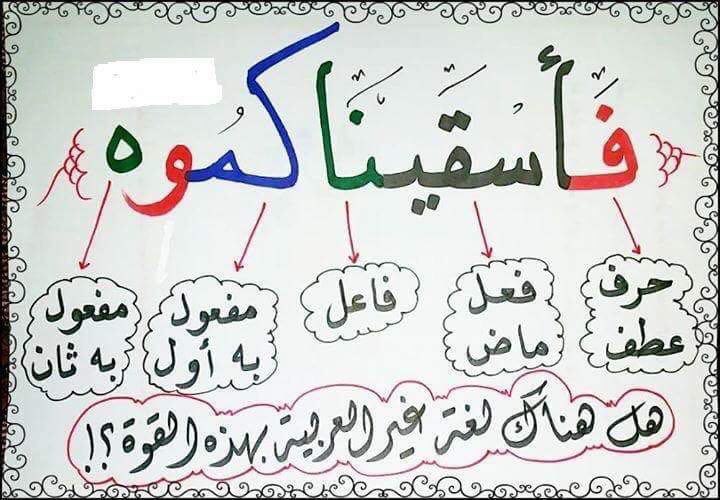 فَأَسْقَيْنَاكُموه
حرف عطف
فعل ماض
فاعل
مفعول به أول
مفعول به ثان
هل هناك لغة غير العربية بهذه القوة؟!